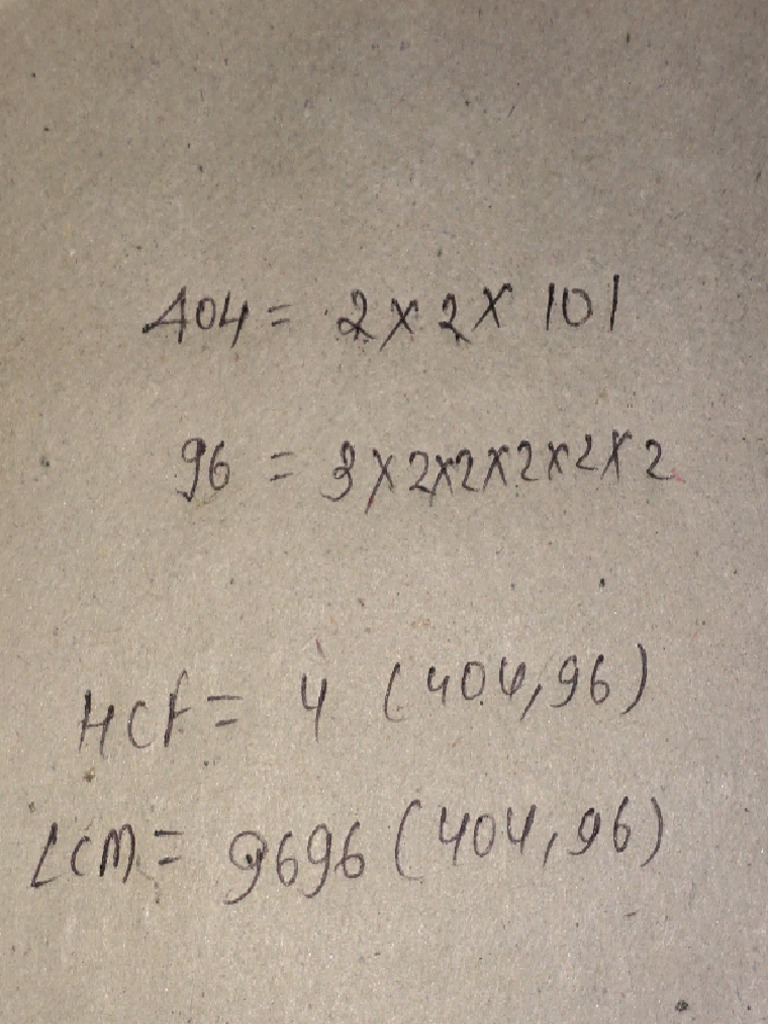 404 = 2 × 2 × 101
96 = 3 × 2 × 2 × 2 × 2 × 2
HCF = 4 (404, 96)
LCM = 9696 (404, 96)